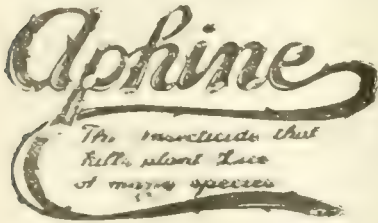 Aphine
The insecticide that
kills plant lice
of many species